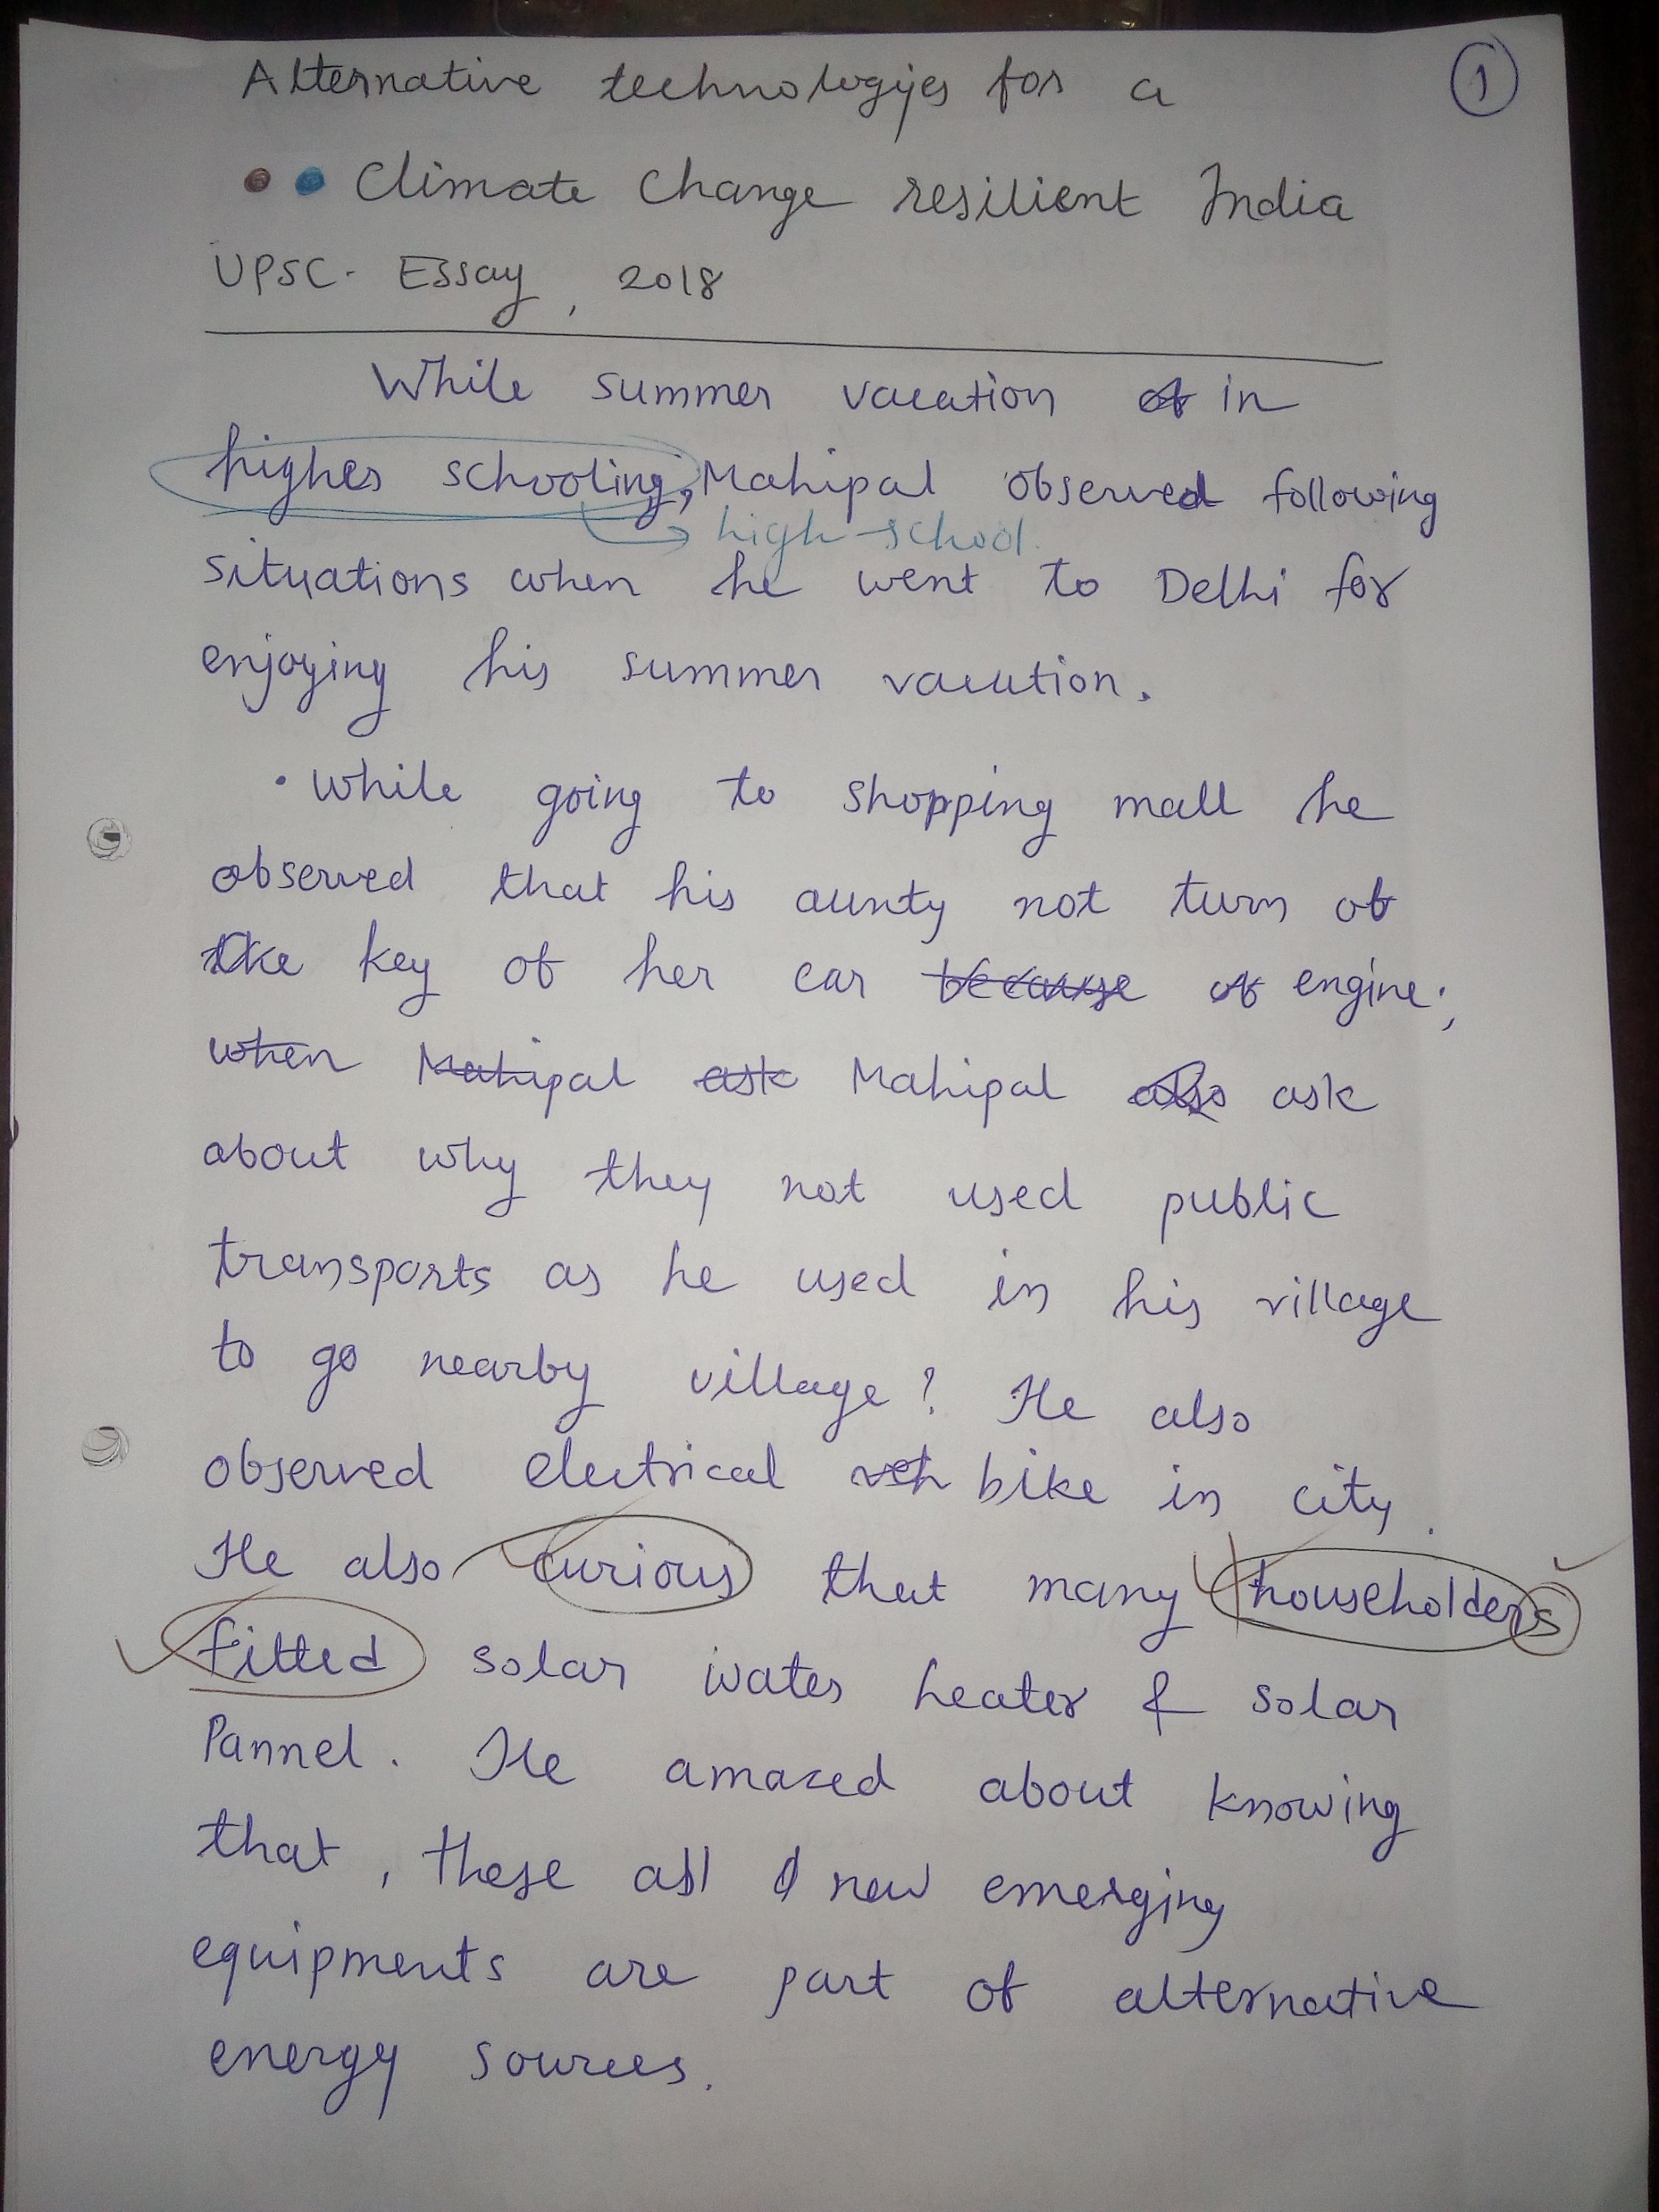 Alternative technologies for a
①
Climate Change resilient India
UPSC- Essay, 2018
While summer vacation of in
higher schooling, Mahipal observed following
high-school.
situations when he went to Delhi for
enjoying his summer vacation.
• While going to shopping mall he
observed that his aunty not turn of
the key of her car because of engine;
when Mahipal ask Mahipal also ask
about why they not used public
transports as he used in his village
to go nearby village? He also
observed electrical veh bike in city.
He also curious that many householders
fitted solar water heater & solar
Pannel. He amazed about knowing
that, these all new emerging
equipments are part of alternative
energy sources.